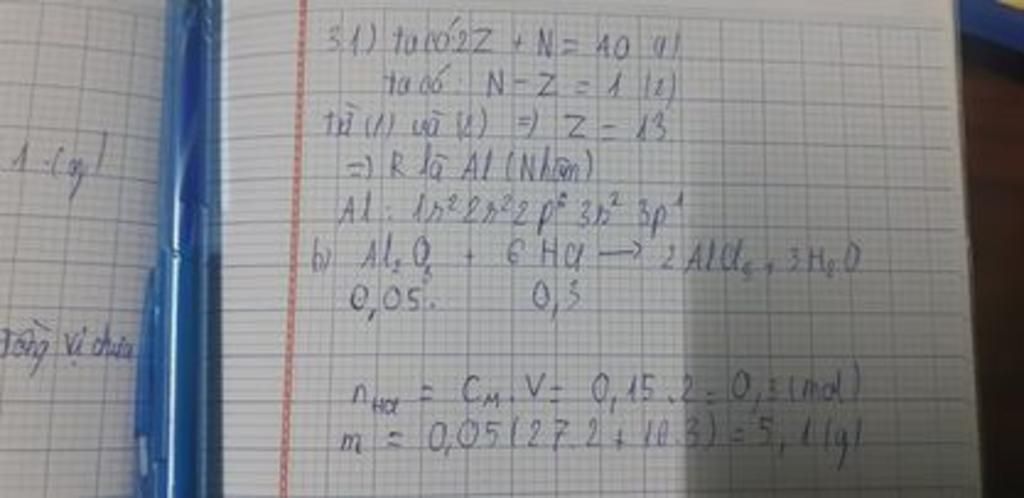 1 (g)
tầng vị chứa
31) ta có 2Z + N = 40 (1)
ta có: N - Z = 1 (2)
từ (1) và (2) => Z = 13
=> R là Al (Nhôm)
Al: 1s² 2s² 2p⁶ 3s² 3p¹
b) Al₂O₃ + 6 HCl → 2AlCl₃ + 3H₂O
0,05 0,3
nHCl = CM . V = 0,15 . 2 = 0,3 (mol)
m = 0,05 (27.2 + 16.3) = 5,1 (g)